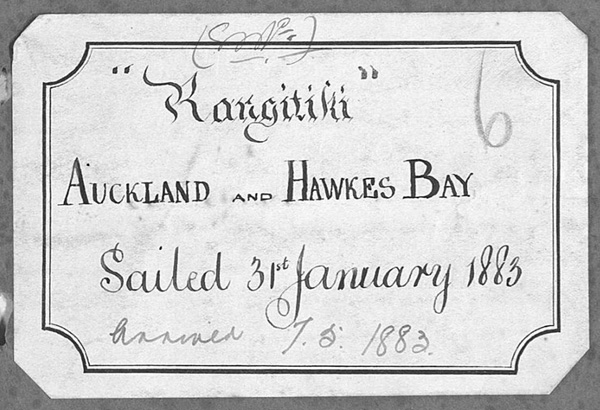 "Rangitiki"
6
AUCKLAND AND HAWKES BAY
Sailed 31st January 1883
Arrived 7.5.1883.